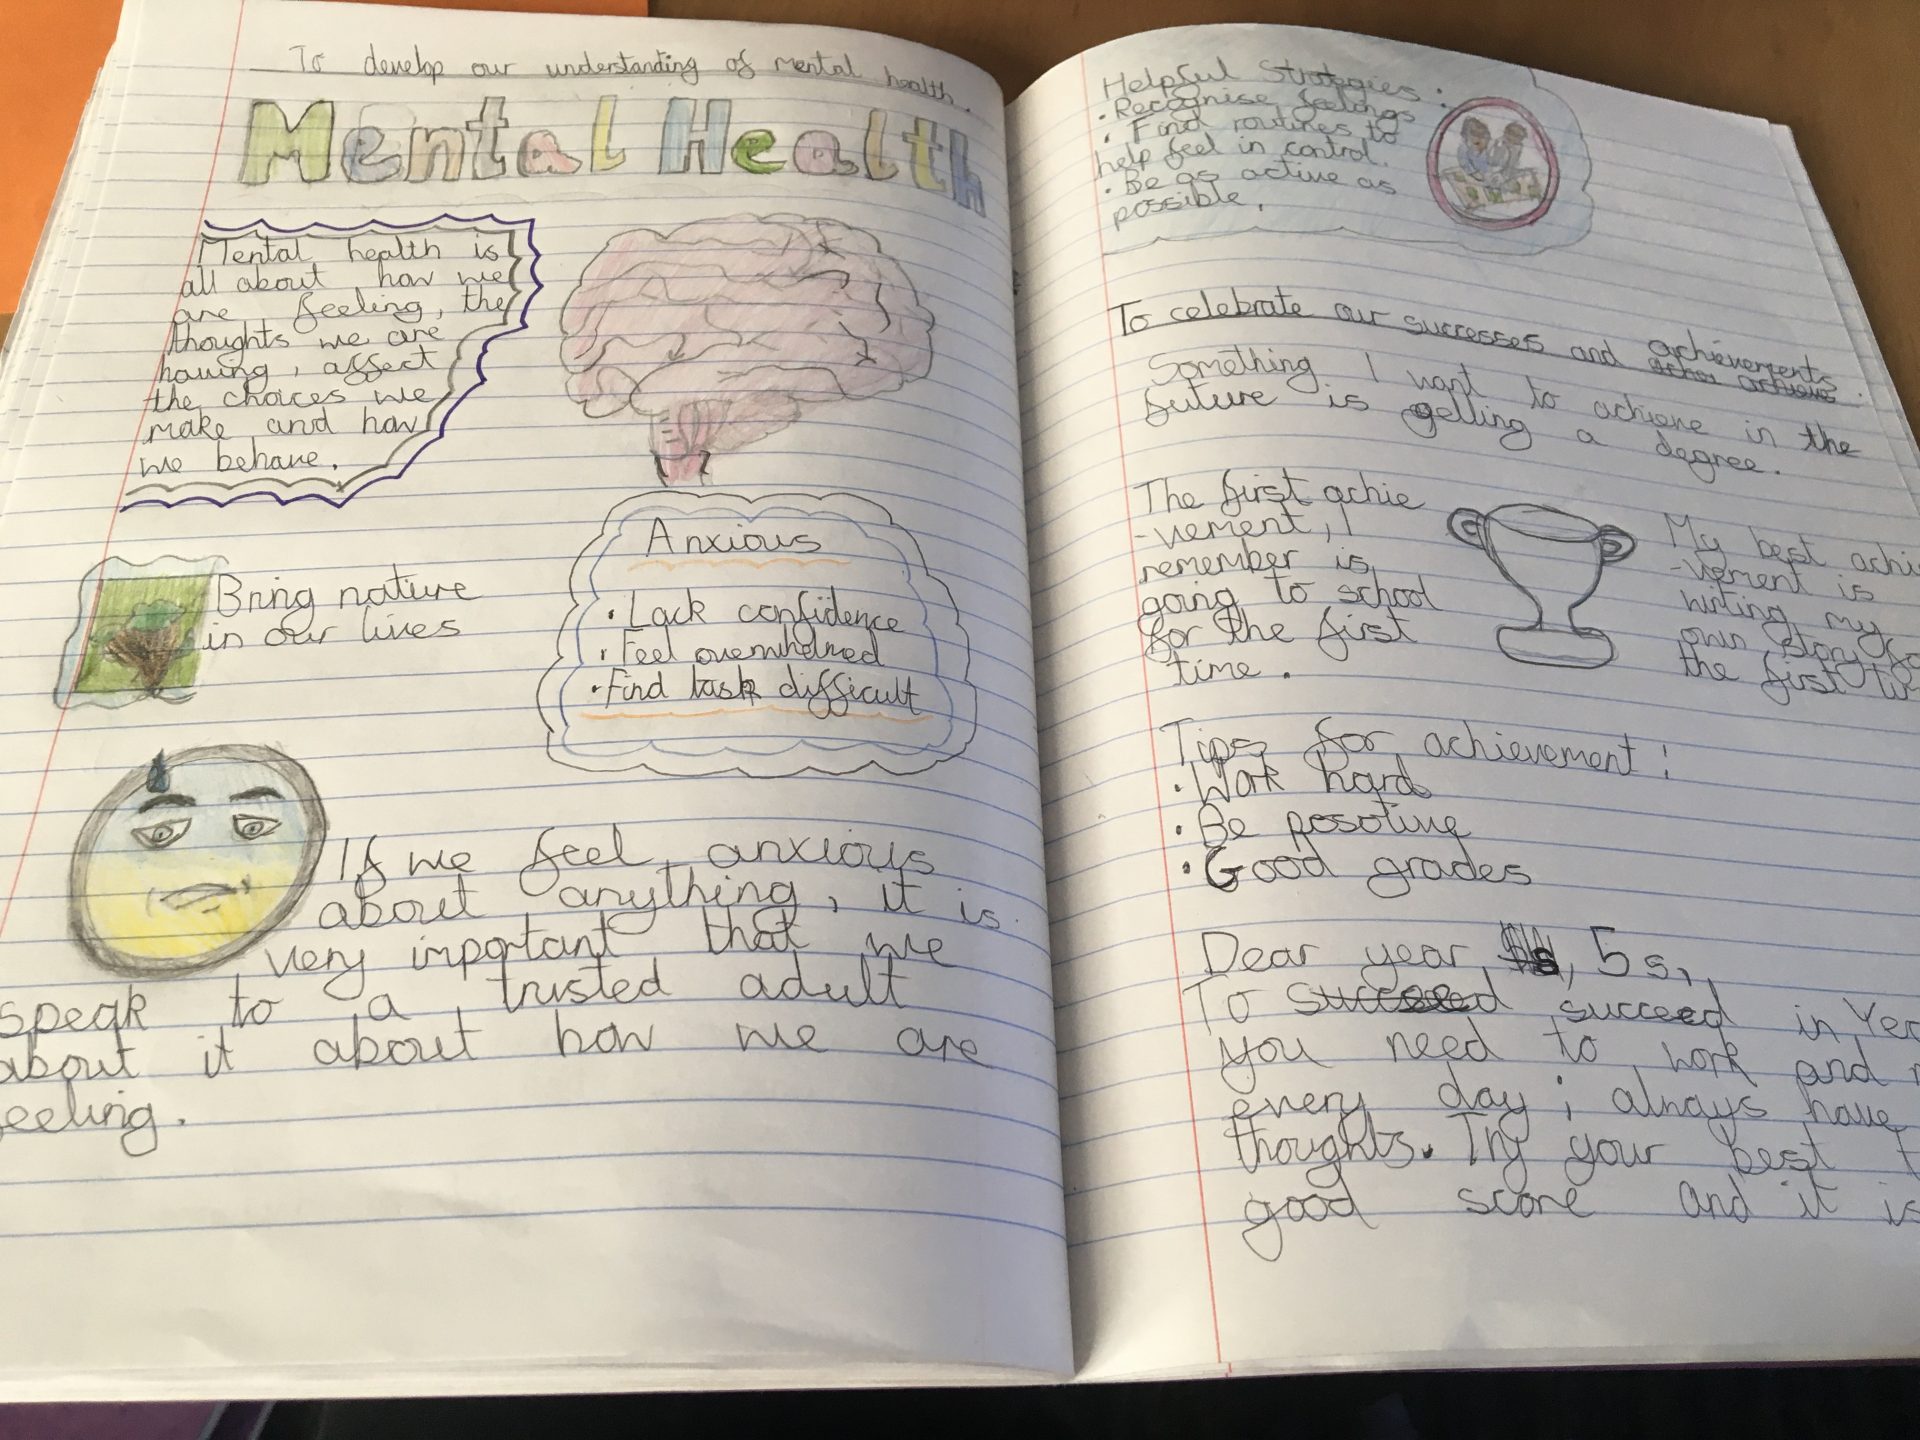 To develop our understanding of mental health.
Mental Health
Mental health is
all about how we
are feeling, the
thoughts we are
having, affect
the choices we
make and how
we behave.
Bring nature
in our lives
Anxious
• Lack confidence
• Feel overwhelmed
• Find task difficult
If we feel anxious
about anything, it is
very important that we
speak to a trusted adult
about it about how we are
feeling.
Helpful Strategies:
• Recognise feelings
• Find routines to
help feel in control.
• Be as active as
possible.
To celebrate our successes and achievements.
Something I want to achieve in the
future is getting a degree.
The first achie
-vement, I
remember is
going to school
for the first
time.
My best achie
-vement is
writing my
own story for
the first
Tips for achievement:
• Work hard
• Be posotive
• Good grades
Dear year 5s,
To succeed in
you need to work and
every day; always have
thoughts. Try your best
good score and it is